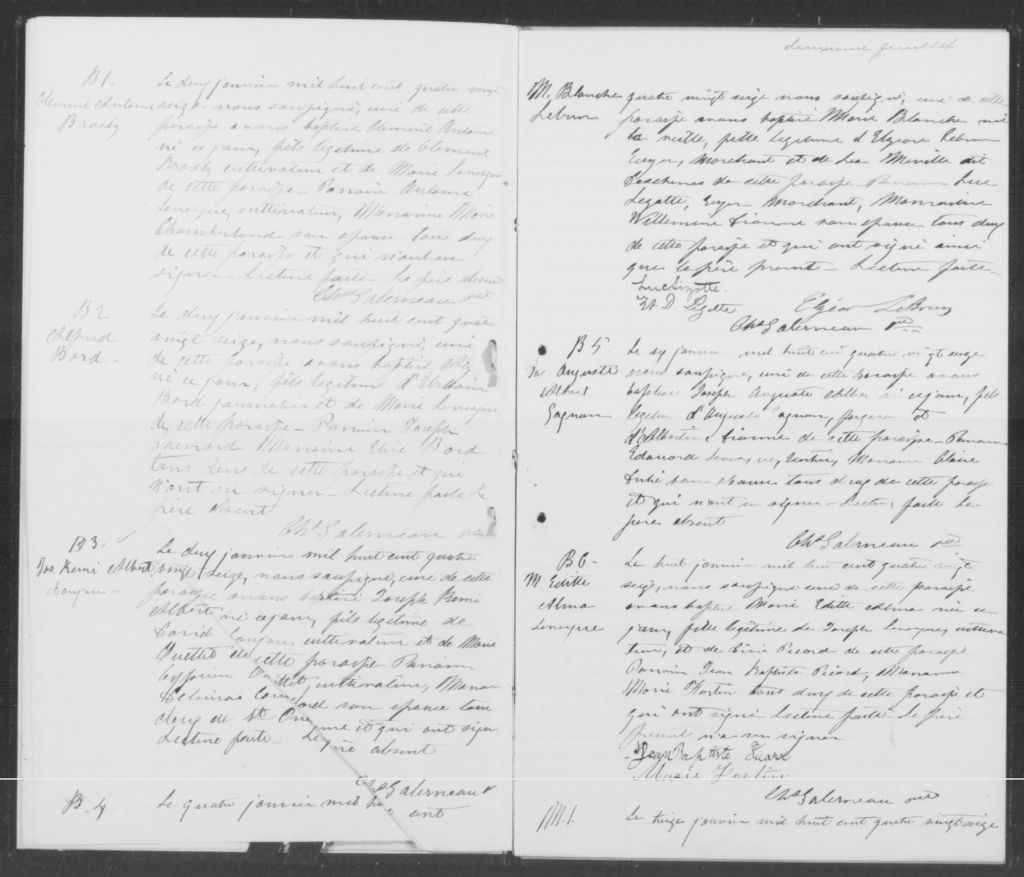 B1.
Clement Antoine
Brosty
Le deux janvier mil huit cent quatre vingt
seize nous soussigné, curé de cette
paroisse avons baptisé Clement Antoine
né ce jour, fils légitime de Clement
Brosty cultivateur et de Marie Levesque
de cette paroisse - Parrain Antoine
Levesque, cultivateur, Marraine Marie
Chamberland son epouse tous deux
de cette paroisse et qui n'ont su
signer - Lecture faite - Le père absent
Chs Galerneau ptre
B2
Alfred
Bord -
Le deux janvier mil huit cent quatre
vingt seize, nous soussigné, curé
de cette paroisse avons baptisé
né ce jour, fils légitime d'
Bord journalier et de Marie Levesque
de cette paroisse - Parrain Joseph
Marraine Bord
tous deux de cette paroisse et qui
n'ont su signer - Lecture faite le
père absent
Chs Galerneau ptre
B3.
Jos. Remi Albert
Le deux janvier mil huit cent quatre
vingt seize, nous soussigné, curé de cette
paroisse avons baptisé Joseph Remi
Albert né ce jour, fils légitime de
David cultivateur et de Marie
Ouellet de cette paroisse Parrain
Cyprien cultivateur, Marraine
son epouse tous
deux de St et qui ont signé
Lecture faite - Le père absent
Chs Galerneau ptre
B.4
Le quatre janvier mil
cent
deuxième feuillet
M. Blanche
Lebrun
quatre vingt seize nous soussigné, curé de cette
paroisse avons baptisé Marie Blanche née
la veille, fille légitime d'Elzear Lebrun
Ecuyer, Marchant et de Lea Miville dit
Deschenes de cette paroisse - Parrain Luc
Lizotte, Ecuyer Marchant, Marraine
Willemine Dionne son epouse tous deux
de cette paroisse et qui ont signé ainsi
que le père présent - Lecture faite -
Luc Lizotte.
W D Lizotte
Elzéar LeBrun
Chs Galerneau ptre
B5.
Jos Auguste
Albert
Gagnon
Le six janvier mil huit cent quatre vingt seize
nous soussigné, curé de cette paroisse avons
baptisé Joseph Auguste Albert né ce jour, fils
légitime d'Auguste Gagnon, forgeron et
d'Albertine Dionne de cette paroisse - Parrain
Edouard Levesque, rentier, Marraine Claire
Dubé son epouse tous deux de cette paroisse
et qui n'ont su signer - Lecture faite le
père absent
Chs Galerneau ptre
B6 -
M Editte
Alma
Levesque
Le huit janvier mil huit cent quatre vingt
seize, nous soussigné curé de cette paroisse
avons baptisé Marie Editte Alma née ce
jour, fille légitime de Joseph Levesque, cultiva
teur, et de Picard de cette paroisse
Parrain Jean Baptiste Picard, Marraine
Marie Fortin tous deux de cette paroisse et
qui ont signé Lecture faite Le père
présent n'a su signer
Jean Baptiste Picard
Marie Fortin
Chs Galerneau ptre
M.1.
Le treize janvier mil huit cent quatre vingt seize